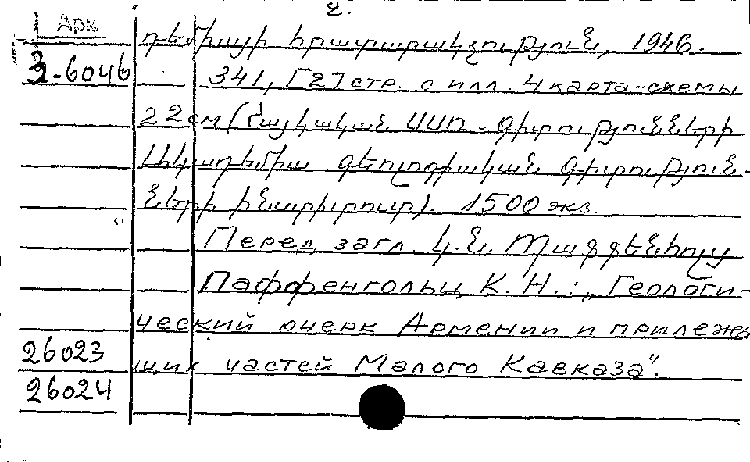 2.
Арх
դեմիայի հրատարակչություն, 1946.
3-6046
341, [2] стр. с илл. 4 карта-схемы
22см (Հայկական ՍՍՌ. Գիտությունների
Ակադեմիա գեոլոգիական գիտություն-
ների ինստիտուտ). 1500 экз.
Перед загл. Կ. Ն. Պաֆֆենհոլց
Паффенгольц К. Н.: „Геологи-
ческий очерк Армении и прилежа
щих частей Малого Кавказа".
26023
26024